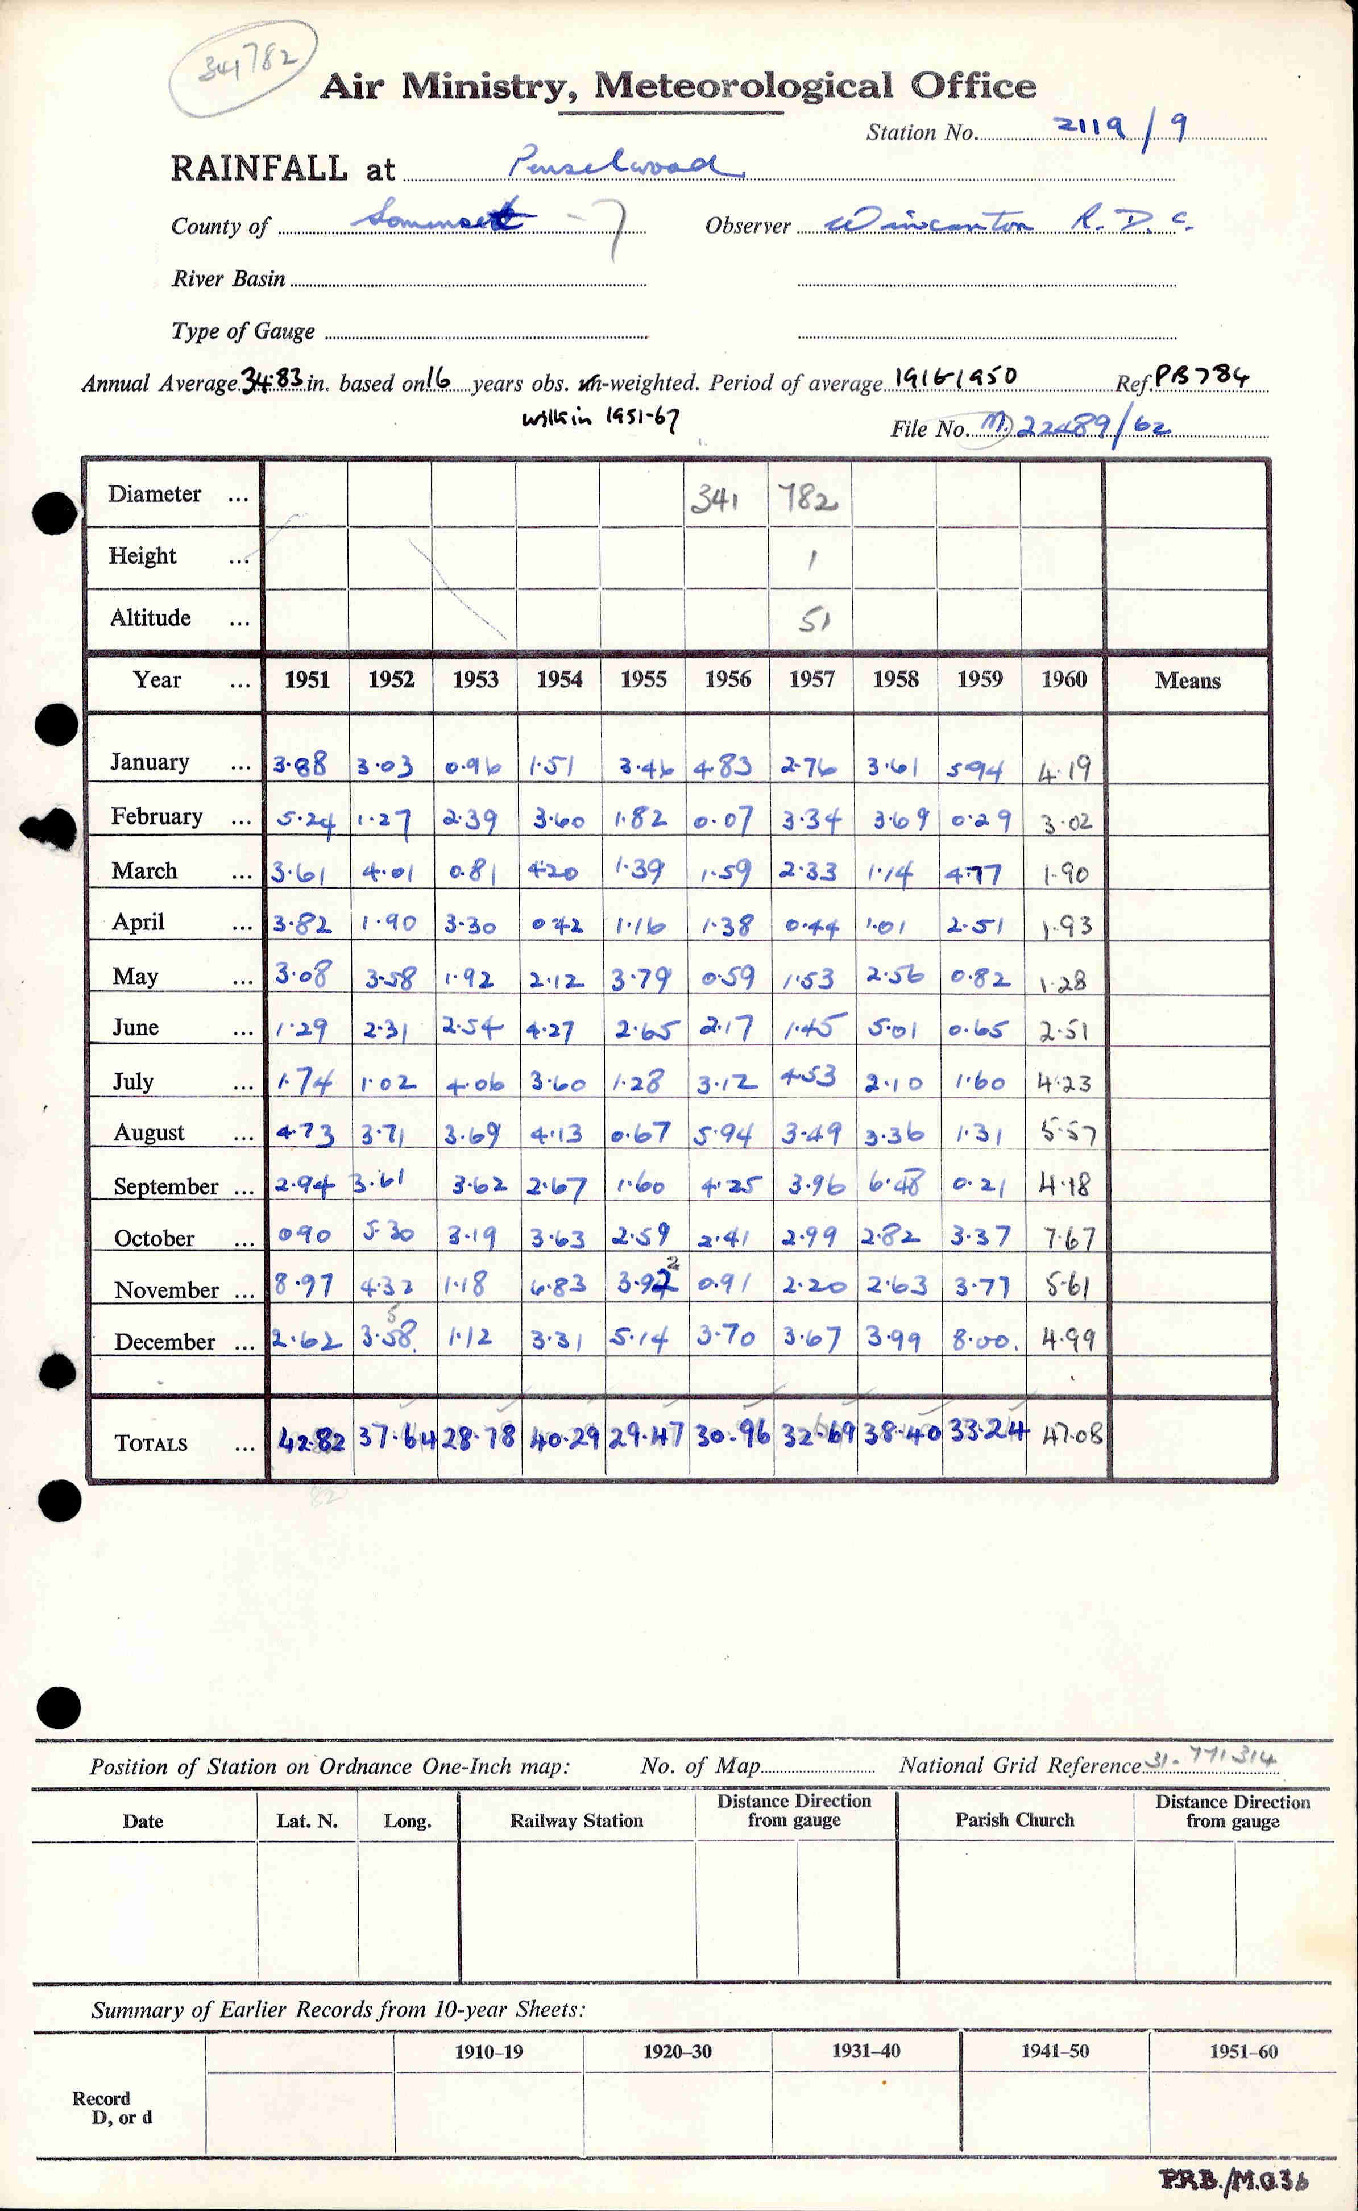 341782
Air Ministry, Meteorological Office
Station No. 2119/9
RAINFALL at Penselwood
County of Somerset - 7 Observer Wincanton R.D.C.
River Basin
Type of Gauge
Annual Average 34.83 in. based on 16 years obs. un-weighted. Period of average 1916-1950 Ref. PB784
within 1951-67
File No. M.22489/62
Diameter ... 341 782
Height ... 1
Altitude ... 51
Year ... 1951 1952 1953 1954 1955 1956 1957 1958 1959 1960 Means
January ... 3.88 3.03 0.96 1.51 3.46 4.83 2.76 3.61 5.94 4.19
February ... 5.24 1.27 2.39 3.60 1.82 0.07 3.34 3.69 0.29 3.02
March ... 3.61 4.01 0.81 4.20 1.39 1.59 2.33 1.14 4.77 1.90
April ... 3.82 1.90 3.30 0.42 1.16 1.38 0.44 1.01 2.51 1.93
May ... 3.08 3.58 1.92 2.12 3.79 0.59 1.53 2.56 0.82 1.28
June ... 1.29 2.31 2.54 4.27 2.65 2.17 1.45 5.01 0.65 2.51
July ... 1.74 1.02 4.06 3.60 1.28 3.12 4.53 2.10 1.60 4.23
August ... 4.73 3.71 3.69 4.13 0.67 5.94 3.49 3.36 1.31 5.57
September ... 2.94 3.61 3.62 2.67 1.60 4.25 3.96 6.48 0.21 4.18
October ... 0.90 5.30 3.19 3.63 2.59 2.41 2.99 2.82 3.37 7.67
2
November ... 8.97 4.32 1.18 6.83 3.92 0.91 2.20 2.63 3.77 5.61
5
December ... 2.62 3.58 1.12 3.31 5.14 3.70 3.67 3.99 8.00 4.99
TOTALS ... 42.82 37.64 28.78 40.29 29.47 30.96 32.69 38.40 33.24 47.08
82
Position of Station on Ordnance One-Inch map: No. of Map National Grid Reference 31-771314
Date Lat. N. Long. Railway Station Distance Direction from gauge Parish Church Distance Direction from gauge
Summary of Earlier Records from 10-year Sheets:
1910–19 1920–30 1931–40 1941–50 1951–60
Record
D, or d
PRB./M.O.36